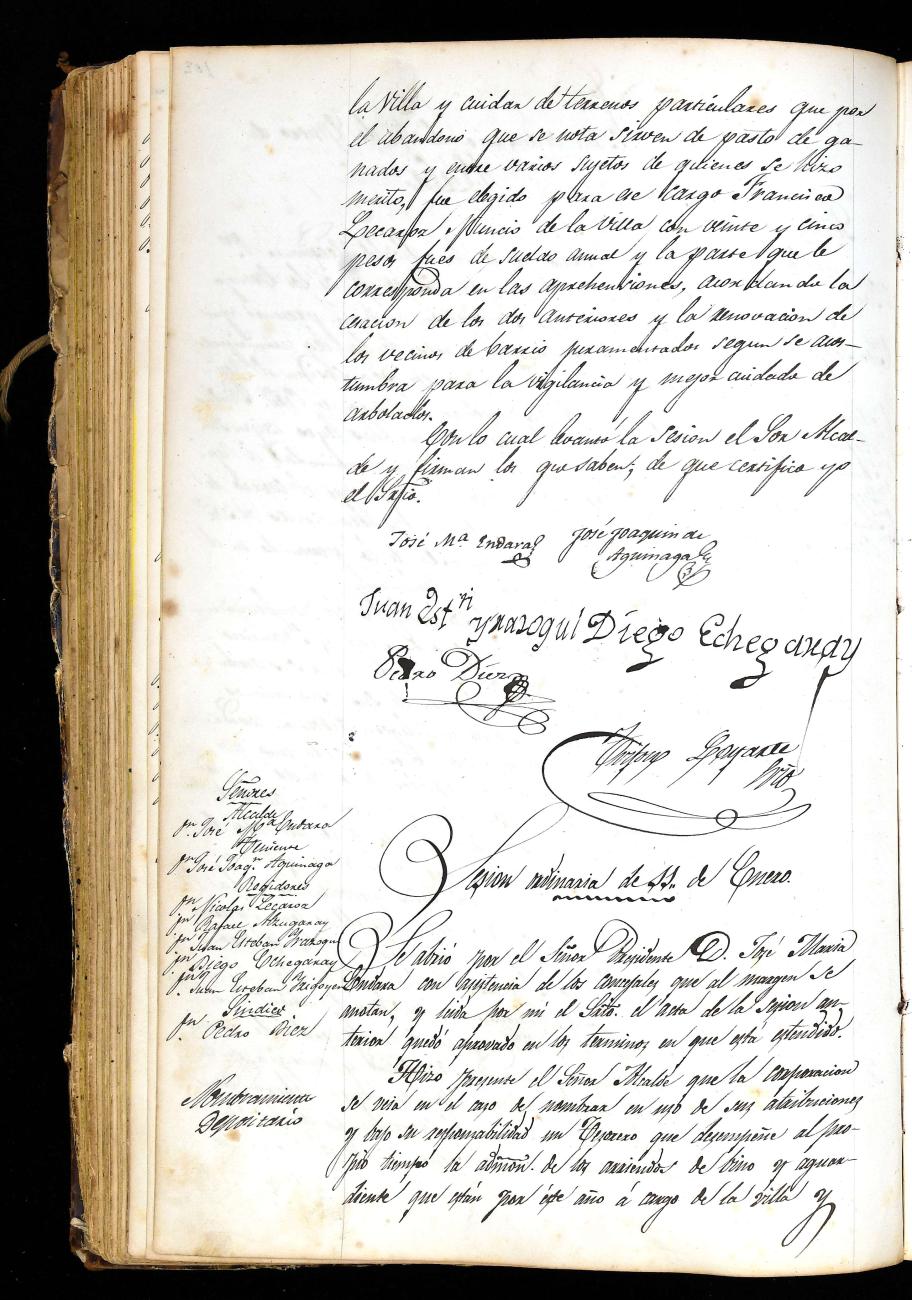 la Villa y cuidar de terrenos particulares que por
el abandono que se nota sirven de pasto de ga-
nados y entre varios sujetos de quienes se hizo
merito, fue elegido para ese cargo Francisco
Lecaroz Nuncio de la Villa con veinte y cinco
pesos fues de sueldo anual y la parte que le
corresponda en las aprehensiones, acordando la
cesacion de los dos anteriores y la renovacion de
los vecinos de barrio juramentados segun se acos-
tumbra para la vigilancia y mejor cuidado de
arbolados.
Con lo cual levantó la sesion el Sor Alcal-
de y firman los que saben, de que certifico yo
el Srio.
José Ma. Endara
José Joaquin de
Aguinaga
Juan Estn
Yrazogui Diego Echegaray
Pedro Diez
Loyarte
Srio
Señores
Alcalde
Dn. José Ma Endara
Teniente
Dn. José Joaqn. Aguinaga
Regidores
Dn. Nicolas Lecaroz
Dn. Rafael Alzugaray
Dn. Juan Esteban Yrazoqui
Dn. Diego Echegaray
Dn. Juan Esteban Yrigoyen
Sindico
Dn. Pedro Diez
Sesion ordinaria de 11. de Enero.
Se abrió por el Señor Presidente D. José Maria
Endara con asistencia de los concejales que al margen se
anotan, y leida por mi el Srto. el acta de la sesion an-
terior quedó aprovado en los terminos en que está estendido.
Nombramiento
Depositario
Hizo presente el Señor Alcalde que la corporacion
se veia en el caso de nombrar en uso de sus atribuciones
y bajo su responsabilidad un Tesorero que desempeñe al pro-
pio tiempo la admon. de los arriendos de vino y aguar-
diente que están por éste año á cargo de la villa y